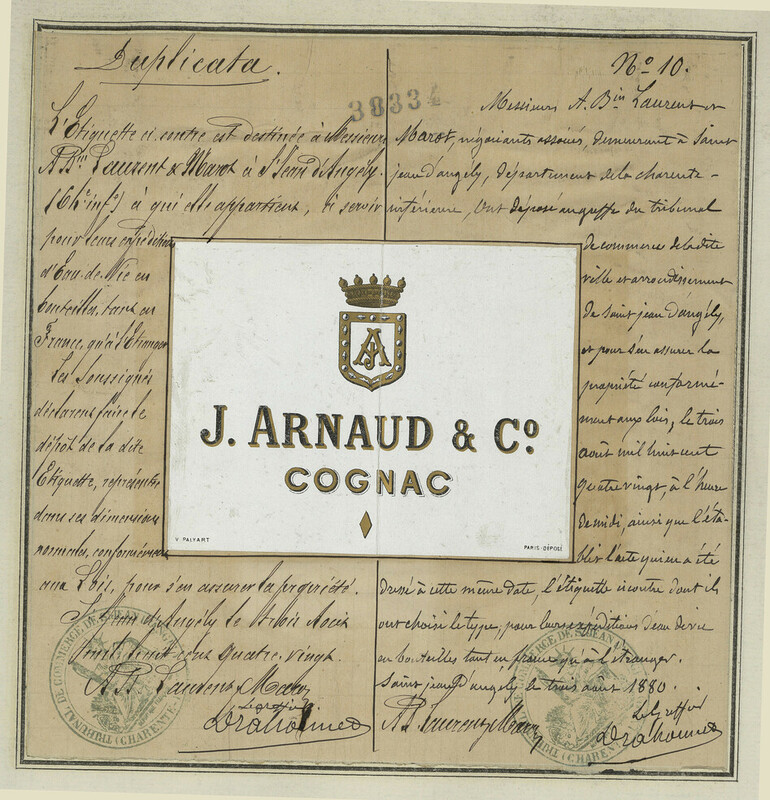 Duplicata.
L'Etiquette ci contre est destinée à Messieurs
A Bin Laurent & Marot à St Jean d'Angély.
(Ch.te infre) à qui elle appartient, et servir
pour leurs expéditions
d'Eau de Vie en
bouteilles, tant en
France, qu'à l'Etranger
Les Soussignés
déclarent faire le
dépôt de la dite
Etiquette, représentée
dans ses dimensions
normales, conformément
aux Lois, pour s'en assurer la propriété.
St Jean d'Angély le trois Août
mil huit cent quatre vingt.
A B Laurent & Marot
Le greffier
38334
No 10.
Messieurs A. Bin Laurent et
Marot, négociants associés, demeurant à Saint
jean d'angély, département de la charente-
inférieure, Ont déposé au greffe du tribunal
de commerce de la dite
ville et arrondissement
de Saint jean d'angély,
et pour s'en assurer la
propriété conformé-
ment aux lois, le trois
août mil huit cent
quatre vingt, à l'heure
de midi, ainsi que l'éta-
blit l'acte qui en a été
dressé à cette même date, l'étiquette ci contre dont ils
ont choisi le type, pour leurs expéditions d'eau de vie
en bouteilles tant en france qu'à l'étranger.
Saint jean d'angély le trois août 1880.
A B Laurent & Marot
Le Greffier
J A
J. ARNAUD & Co
COGNAC
V. PALYART
PARIS-DÉPOSÉ
TRIBUNAL DE COMMERCE DE St JEAN D'ANGELY
(CHARENTE-
TRIBUNAL DE COMMERCE DE St JEAN
(CHARENTE-